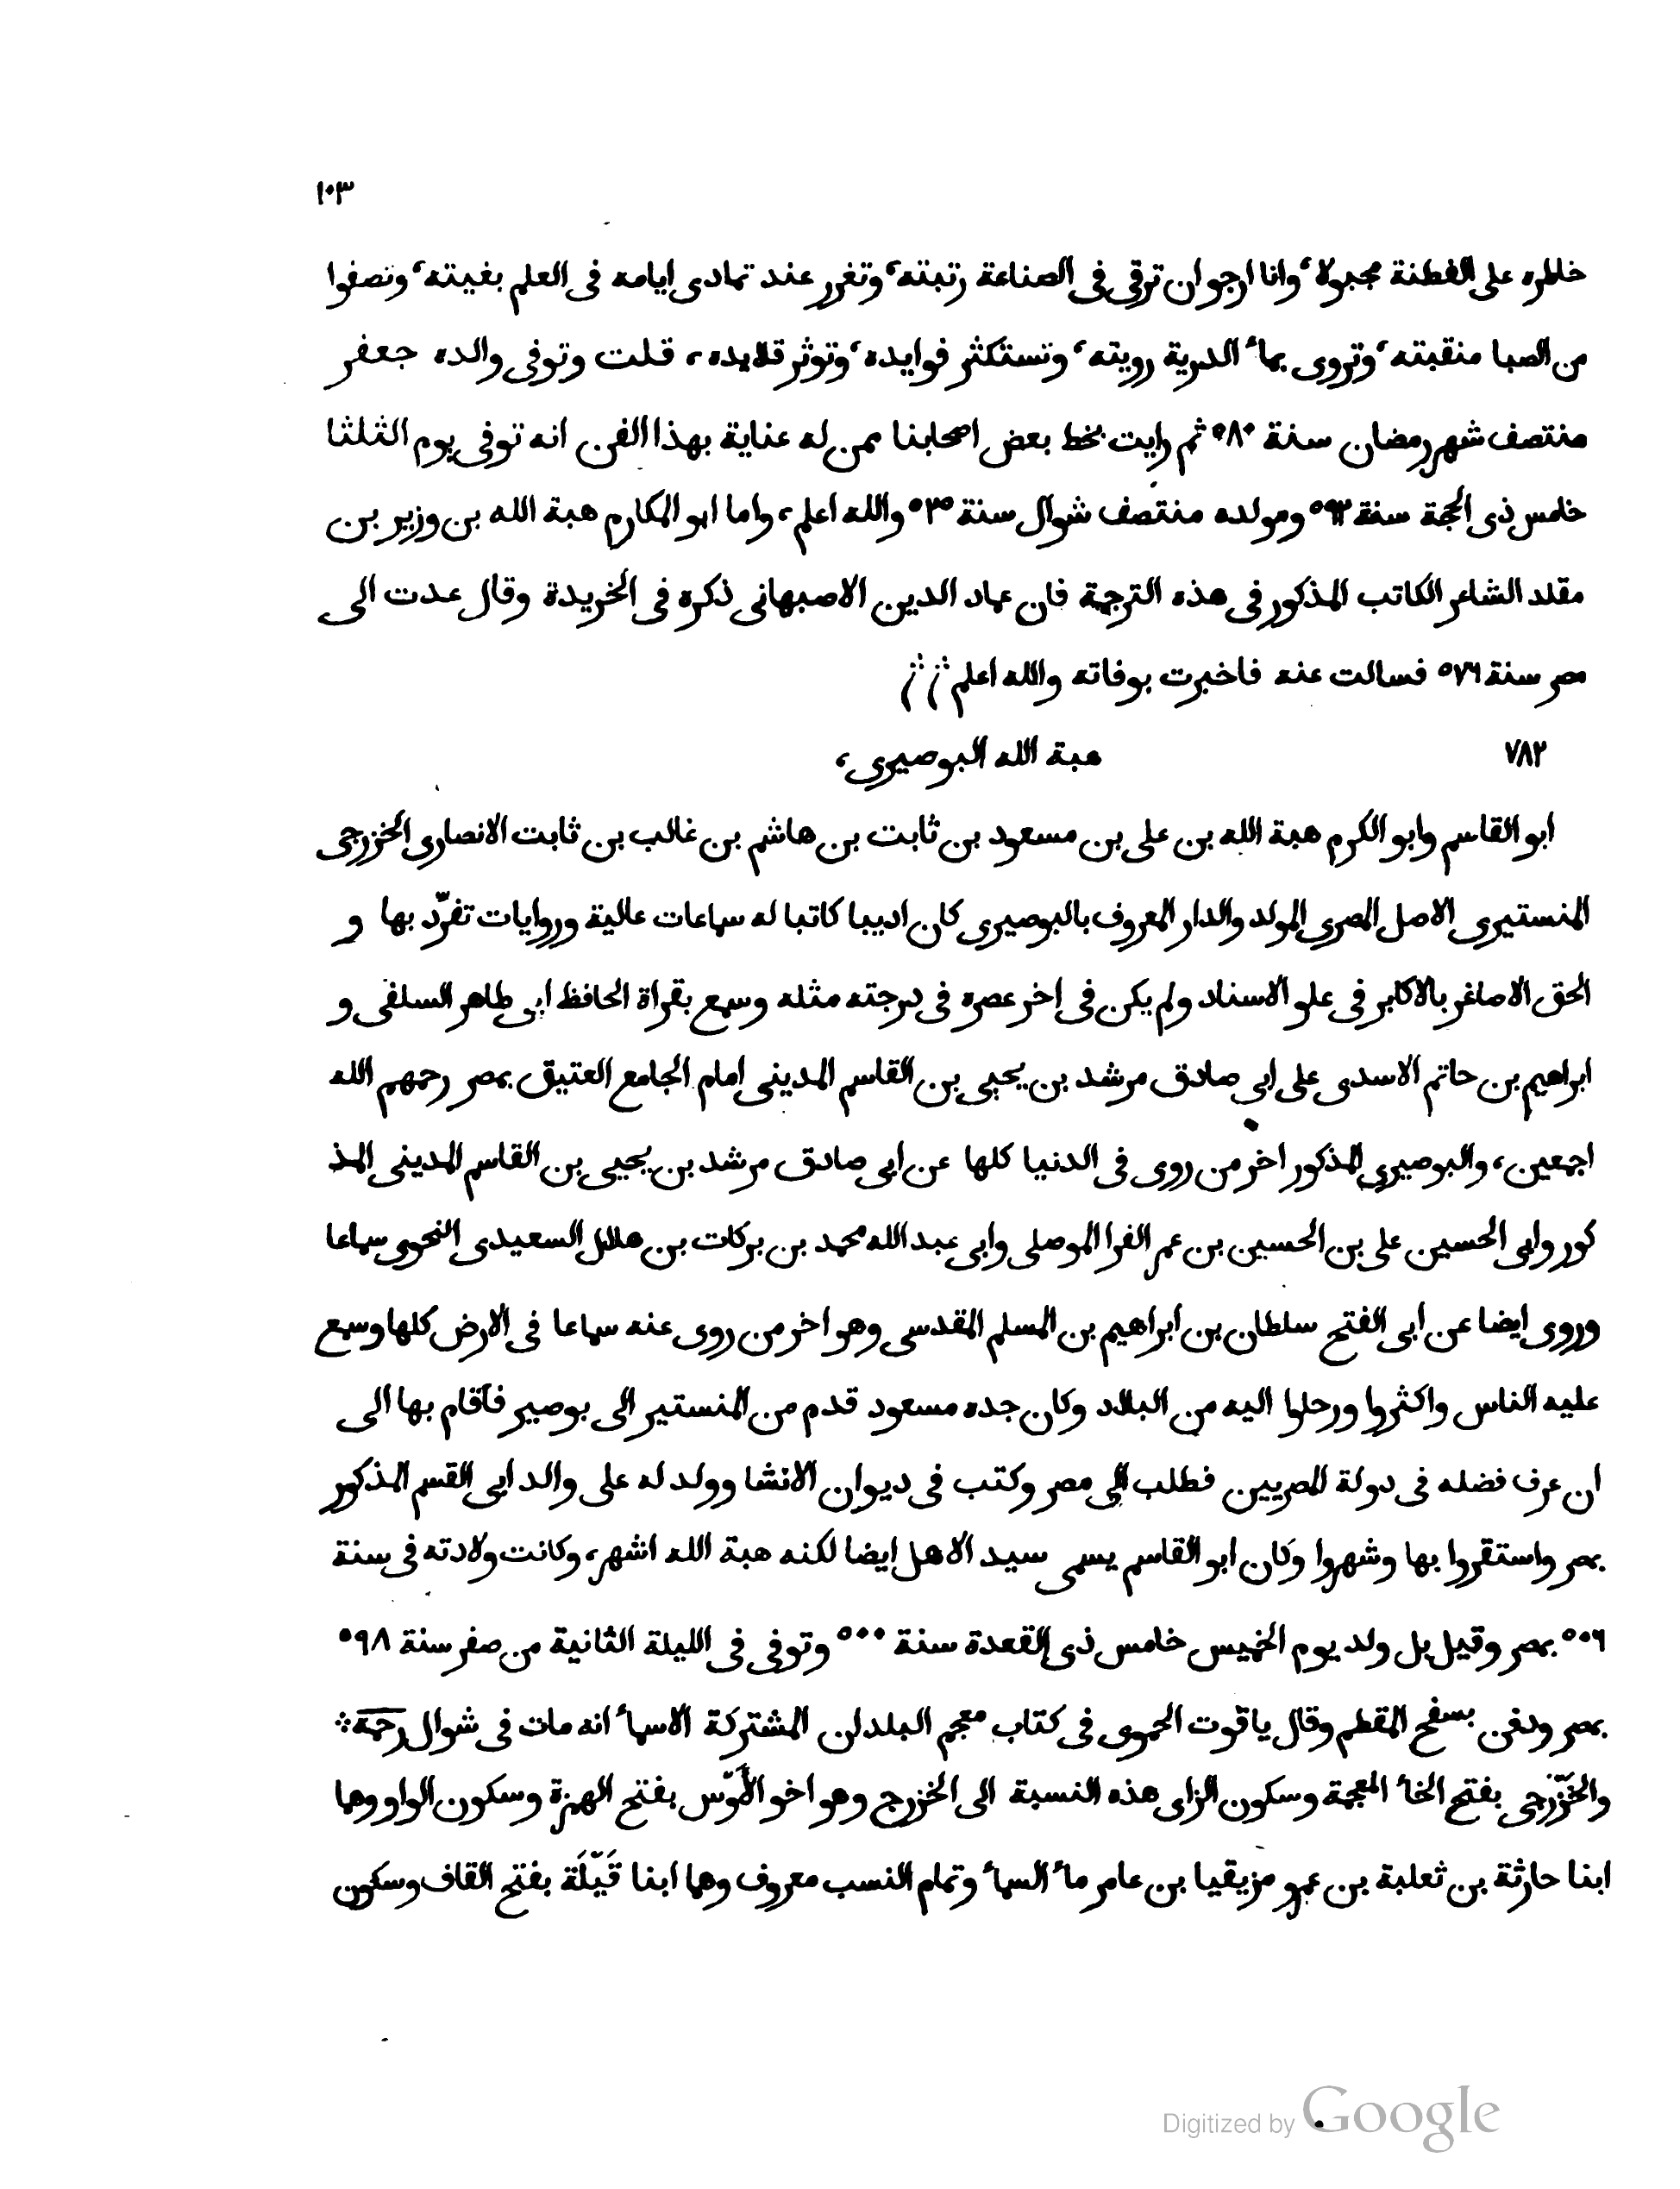 ١٠٣
خاطره على الفطنة مجبولا، وانا ارجو ان ترقى فى الصناعة رتبته، وتغزر عند تمادى ايامه فى العلم بغيته، وتصفوا
من الصبا منقبته، وتروى بماء الدربة رويته، وتستكثر فوايده، وتوثر قلايده، قلت وتوفى والده جعفر
منتصف شهر رمضان سنة ٥٨٠ ثم رايت بخط بعض اصحابنا ممن له عناية بهذا الفن انه توفى يوم الثلثا
خامس ذى الحجة سنة ٥٩٢ ومولده منتصف شوال سنة ٥٢٥ والله اعلم، واما ابو المكارم هبة الله بن وزير بن
مقلد الشاعر الكاتب المذكور فى هذه الترجمة فان عماد الدين الاصبهانى ذكره فى الخريدة وقال عدت الى
مصر سنة ٥٧٦ فسالت عنه فاخبرت بوفاته والله اعلم
٧٨٢ هبة الله البوصيرى،
ابو القاسم وابو الكرم هبة الله بن على بن مسعود بن ثابت بن هاشم بن غالب بن ثابت الانصارى الخزرجى
المنستيرى الاصل المصرى المولد والدار المعروف بالبوصيرى كان اديبا كاتبا له سماعات عالية وروايات تفرّد بها و
الحق الاصاغر بالاكابر فى علو الاسناد ولم يكن فى اخر عصره فى درجته مثله وسمع بقراة الحافظ ابى طاهر السلفى و
ابراهيم بن حاتم الاسدى على ابى صادق مرشد بن يحيى بن القاسم المدينى امام الجامع العتيق بمصر رحمهم الله
اجمعين، والبوصيرى المذكور اخر من روى فى الدنيا كلها عن ابى صادق مرشد بن يحيى بن القاسم المدينى المذ
كور وابى الحسين على بن الحسين بن عمر الفرا الموصلى وابى عبد الله محمد بن بركات بن هلال السعيدى النحوى سماعا
وروى ايضا عن ابى الفتح سلطان بن ابراهيم بن المسلم المقدسى وهو اخر من روى عنه سماعا فى الارض كلها وسمع
عليه الناس واكثروا ورحلوا اليه من البلاد وكان جده مسعود قدم من المنستير الى بوصير فاقام بها الى
ان عرف فضله فى دولة المصريين فطلب الى مصر وكتب فى ديوان الانشا وولد له على والد ابى القسم المذكور
بمصر واستقروا بها وشهروا وكان ابو القاسم يسمى سيد الاهل ايضا لكنه هبة الله اشهر، وكانت ولادته فى سنة
٥٠٦ بمصر وقيل بل ولد يوم الخميس خامس ذى القعدة سنة ٥٠٠ وتوفى فى الليلة الثانية من صفر سنة ٥٩٨
بمصر ودفن بسفح المقطم وقال ياقوت الحموى فى كتاب معجم البلدان المشتركة الاسماء انه مات فى شوال رحمه
والخَزْرَجى بفتح الخاء المعجمة وسكون الزاى هذه النسبة الى الخزرج وهو اخو الأَوْس بفتح الهمزة وسكون الواو وهما
ابنا حارثة بن ثعلبة بن عمرو مزيقيا بن عامر ماء السماء وتمام النسب معروف وهما ابنا قَيْلَة بفتح القاف وسكون
Digitized by Google